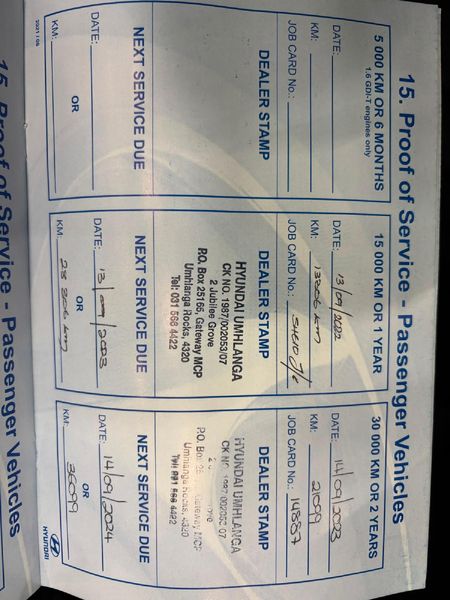 15. Proof of Service - Passenger Vehicles
5 000 KM OR 6 MONTHS
1.6 GDI-T engines only
DATE:
KM:
JOB CARD No.:
DEALER STAMP
NEXT SERVICE DUE
DATE:
OR
KM:
2021 / 05
15 000 KM OR 1 YEAR
DATE: 13/09/2022
KM: 13306 km
JOB CARD No.:
DEALER STAMP
HYUNDAI UMHLANGA
CK NO. 1987/002053/07
2 Jubilee Grove
P.O. Box 25166, Gateway MCP
Umhlanga Rocks, 4320
Tel: 031 566 4422
NEXT SERVICE DUE
DATE: 13/09/2023
OR
KM: 28 306 km
30 000 KM OR 2 YEARS
DATE: 14/09/2023
KM: 21099
JOB CARD No.: 14887
DEALER STAMP
HYUNDAI UMHLANGA
CK NO. 1987/002053/07
P.O. Box Gateway MCP
Umhlanga Rocks, 4320
NEXT SERVICE DUE
DATE: 14/09/2024
OR
KM: 36099
HYUNDAI
15. Proof of Service - Passenger Vehicles